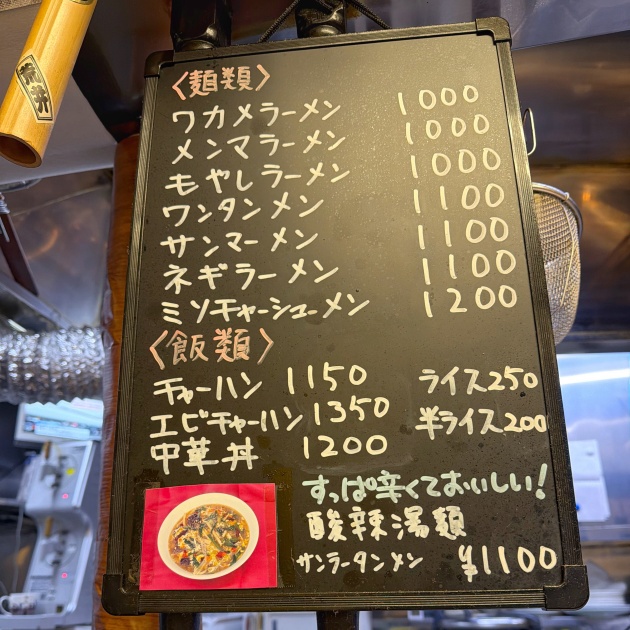 〈麺類〉
ワカメラーメン 1000
メンマラーメン 1000
もやしラーメン 1000
ワンタンメン 1100
サンマーメン 1100
ネギラーメン 1100
ミソチャーシューメン 1200
〈飯類〉
チャーハン 1150 ライス250
エビチャーハン 1350 半ライス200
中華丼 1200
すっぱ辛くておいしい!
酸辣湯麺
サンラータンメン ¥1100